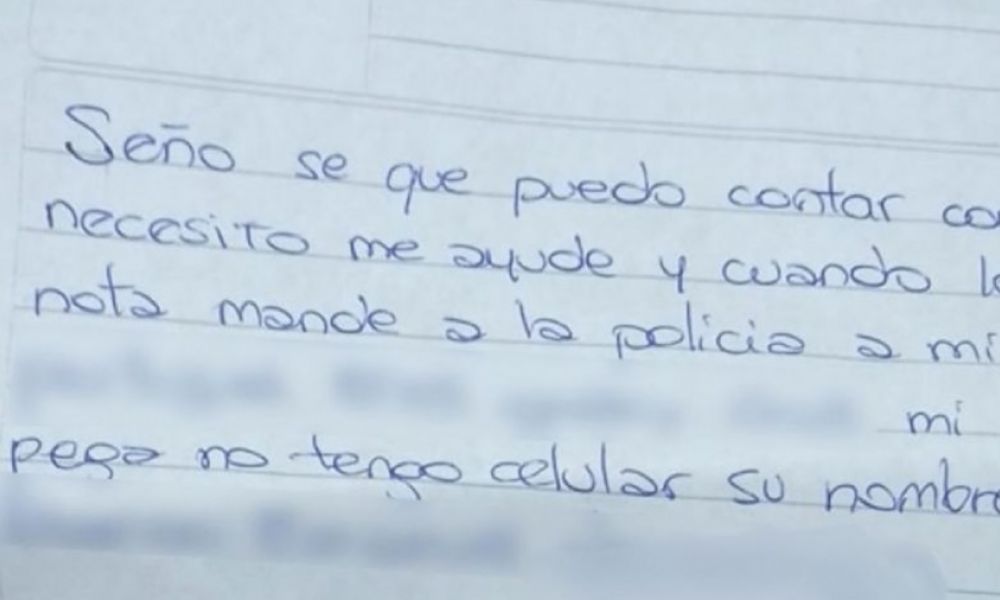 Seño se que puedo contar co
necesito me ayude y cuando l
nota mande a la policia a mi
mi
pega no tengo celular su nombre